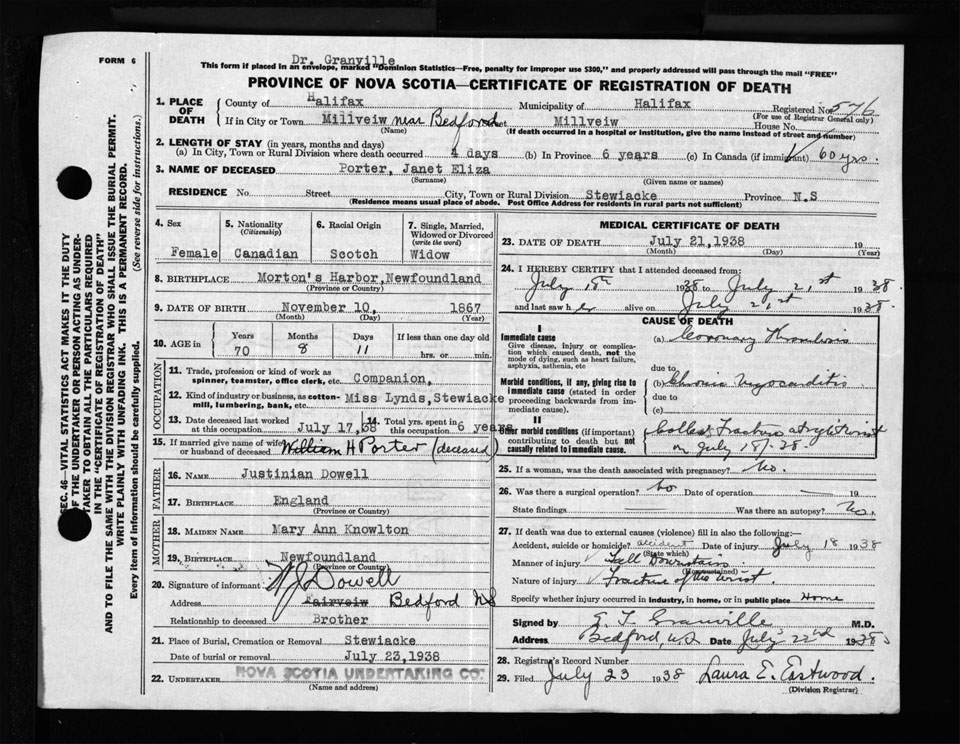 FORM 6
Dr. Granville
This form if placed in an envelope, marked "Dominion Statistics—Free, penalty for improper use $300," and properly addressed will pass through the mail "FREE"
PROVINCE OF NOVA SCOTIA—CERTIFICATE OF REGISTRATION OF DEATH
SEC. 46—VITAL STATISTICS ACT MAKES IT THE DUTY
OF THE UNDERTAKER OR PERSON ACTING AS UNDER-
TAKER TO OBTAIN ALL THE PARTICULARS REQUIRED
IN THE "CERTIFICATE OF REGISTRATION OF DEATH"
AND TO FILE THE SAME WITH THE DIVISION REGISTRAR WHO SHALL ISSUE THE BURIAL PERMIT.
WRITE PLAINLY WITH UNFADING INK. THIS IS A PERMANENT RECORD.
Every item of information should be carefully supplied. (See reverse side for instructions.)
1. PLACE OF DEATH
County of Halifax Municipality of Halifax Registered No. 576
(For use of Registrar General only)
If in City or Town Millveiw near Bedford Millveiw House No.
(Name) (If death occurred in a hospital or institution, give the name instead of street and number)
2. LENGTH OF STAY (in years, months and days)
(a) In City, Town or Rural Division where death occurred 4 days (b) In Province 6 years (c) In Canada (if immigrant) 60 yrs.
3. NAME OF DECEASED Porter, Janet Eliza
(Surname) (Given name or names)
RESIDENCE No. Street City, Town or Rural Division Stewiacke Province N.S
(Residence means usual place of abode. Post Office Address for residents in rural parts not sufficient)
4. Sex Female
5. Nationality (Citizenship) Canadian
6. Racial Origin Scotch
7. Single, Married, Widowed or Divorced (write the word) Widow
8. BIRTHPLACE Morton's Harbor, Newfoundland
(Province or Country)
9. DATE OF BIRTH November 10, 1867
(Month) (Day) (Year)
10. AGE in Years 70 Months 8 Days 11 If less than one day old hrs. or min.
OCCUPATION
11. Trade, profession or kind of work as spinner, teamster, office clerk, etc. Companion,
12. Kind of industry or business, as cotton-mill, lumbering, bank, etc. Miss Lynds, Stewiacke
13. Date deceased last worked at this occupation July 17, 38
14. Total yrs. spent in this occupation 6 years
15. If married give name of wife or husband of deceased William H Porter (deceased)
FATHER
16. NAME Justinian Dowell
17. BIRTHPLACE England
(Province or Country)
MOTHER
18. MAIDEN NAME Mary Ann Knowlton
19. BIRTHPLACE Newfoundland
(Province or Country)
20. Signature of informant W J Dowell
Address Fairveiw Bedford NS
Relationship to deceased Brother
21. Place of Burial, Cremation or Removal Stewiacke
Date of burial or removal July 23, 1938
22. UNDERTAKER NOVA SCOTIA UNDERTAKING CO.
(Name and address)
MEDICAL CERTIFICATE OF DEATH
23. DATE OF DEATH July 21, 1938 19
(Month) (Day) (Year)
24. I HEREBY CERTIFY that I attended deceased from:
July 18th 1938 to July 21st 1938.
and last saw her alive on July 21st 1938.
CAUSE OF DEATH
I
Immediate cause
Give disease, injury or complication which caused death, not the mode of dying, such as heart failure, asphyxia, asthenia, etc
(a) Coronary Thrombosis
due to
Morbid conditions, if any, giving rise to immediate cause (stated in order proceeding backwards from immediate cause).
(b) Chronic Myocarditis
due to
(c)
II
Other morbid conditions (if important) contributing to death but not causally related to immediate cause.
Colles Fracture at right wrist
on July 18/38.
25. If a woman, was the death associated with pregnancy? No.
26. Was there a surgical operation? No Date of operation 19
State findings Was there an autopsy? No.
27. If death was due to external causes (violence) fill in also the following:
Accident, suicide or homicide? accident Date of injury July 18 1938
(State which)
Manner of injury Fall Downstairs
(How sustained)
Nature of injury Fracture of the wrist.
Specify whether injury occurred in industry, in home, or in public place Home
Signed by E. F. Granville M.D.
Address Bedford, N.S Date July 22nd 1938
28. Registrar's Record Number
29. Filed July 23 1938 Laura E. Eastwood.
(Division Registrar)